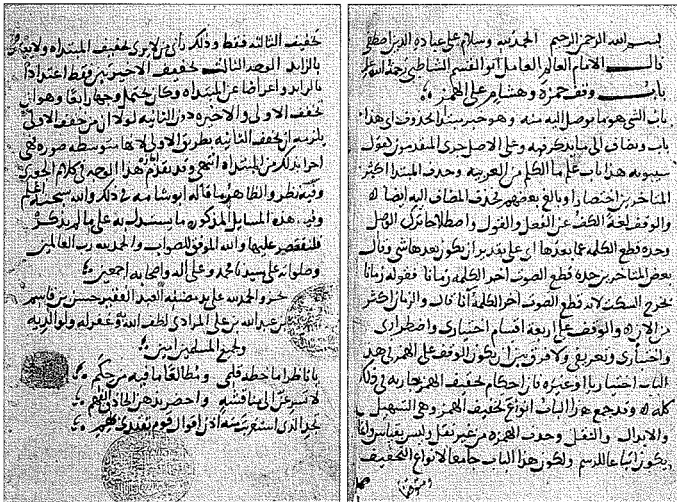 بسم الله الرحمن الرحيم الحمد لله وسلام على عباده الذين اصطفى
قال الامام العالم العامل ابو القسم الشاطبي رحمة الله عليه
باب وقف حمزة وهشام على الهمز
باب الشي هو ما يوصل اليه منه وهو خبر مبتدا محذوف اي هذا
باب ويضاف الى ما يذكر فيه وعلى الاصل جرى المتقدمون كقول
سيبويه هذا باب علم ما الكلم من العربية وحذف المبتدا اكثر
المتاخرين اختصارا وبالغ بعضهم فحذف المضاف اليه ايضا
والوقف لغة الكف عن الفعل والقول واصطلاحا ترك الوصل
وحده قطع الكلمة عما بعدها اي على تقدير ان يكون بعدها شي وقال
بعض المتاخرين حده قطع الصوت اخر الكلمة زمانا فقوله زمانا
يخرج السكت لانه قطع الصوت اخر الكلمة آنا قال والزمان اكثر
من الان والوقف على اربعة اقسام اختياري واضطراري
واختباري وتعريفي ولا فرق بين ان يكون الوقف على الهمز في هذا
الباب اختياريا او غيره فان احكام تخفيف الهمز جارية في ذلك
كله وقد جمع هذا الباب انواع تخفيف الهمز وهي التسهيل
والابدال والنقل وحذف الهمزة من غير نقل وليس بقياس وانما
يكون اتباعا للرسم ولكون هذا الباب جامعا لانواع التخفيف
تخفيف الثالثة فقط وذلك راي من لا يرى تخفيف المبتداه ولا يعتد
بالزايد الوجه الثالث تخفيف الاخيرتين فقط اعتدادا
بالزايد واعراضا عن المبتداه وكان يحتمل وجها رابعا وهو ان
تخفف الاولى والاخيرة دون الثانية لولا ان من خفف الاولى
يلزمه ان يخفف الثانية بطريق الاولى لانها متوسطة صورة فهي
احرى بذلك من المبتداه انتهى وقد تقدم هذا الوجه في كلام الجعبري
وفيه نظر والظاهر ما قاله ابو شامة في ذلك والله سبحنه اعلم
وفي هذه المسايل المذكورة ما يستدل به على ما لم يذكر
فلنقتصر عليها والله الموفق للصواب والحمد لله رب العالمين
وصلواته على سيدنا محمد وعلى اله واصحابه اجمعين
نجز والحمد لله على يد مصنفه العبد الفقير حسن بن قاسم
بن عبد الله بن علي المرادي لطف الله به وغفر له ولوالديه
ولجميع المسلمين امين
يا ناظرا ما خطه قلمي ومطالعا ما فيه من حكم
لا تسرعن الى مناقشة واحضر بذهن الحاذق الفهم
تجد الذي استغربت منه اذن اقوال قوم يقتدى بهم